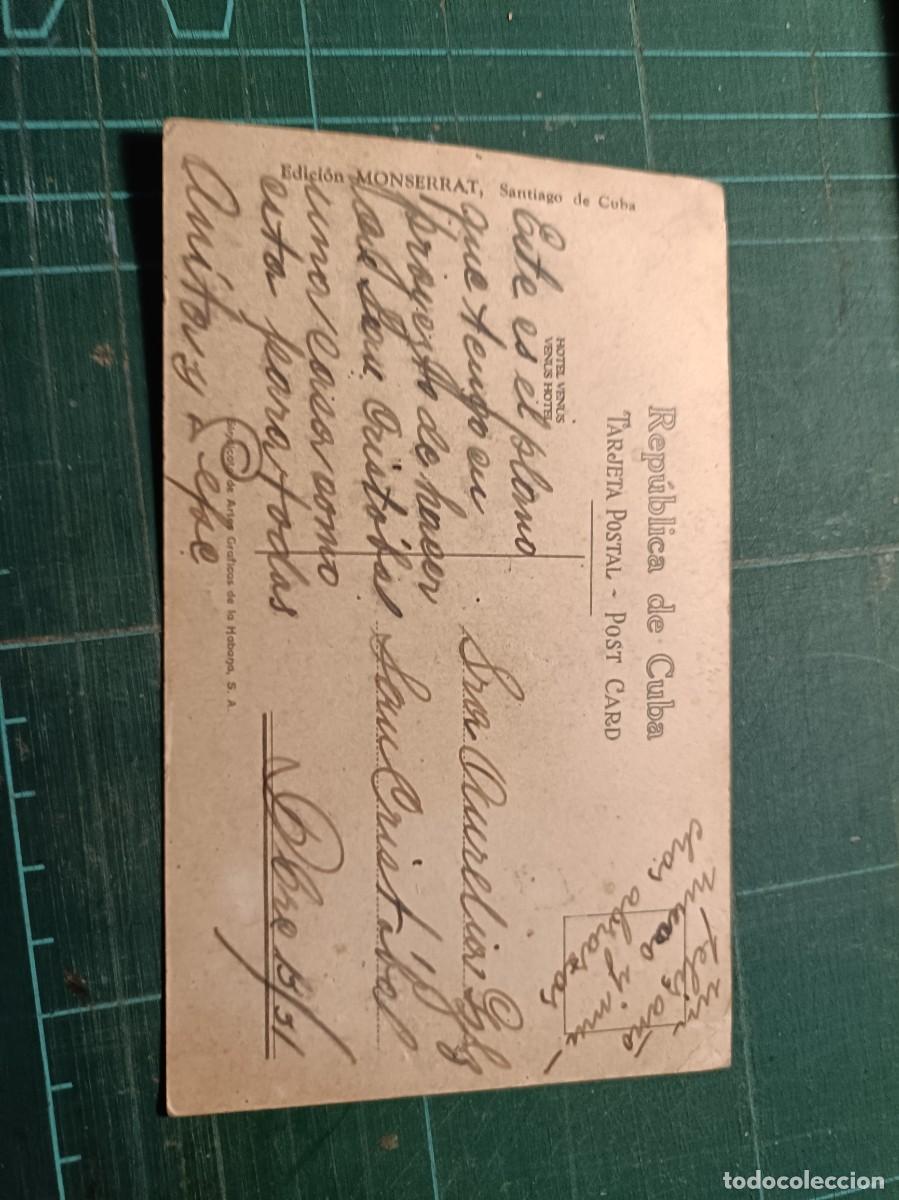 Edición MONSERRAT, Santiago de Cuba
República de Cuba
TARJETA POSTAL - POST CARD
HOTEL VENUS
VENUS HOTEL
Este es el plano
que tengo en
proyecto de hacer
las San Cristobal
una casa como
esta para todas
Anita y Pepe
Sra Aurelia
San Cristobal
Dbre 15/51
un
Feliz año
nuevo y mu-
chos
abrazos
Sindicato de Artes Graficas de la Habana, S. A.
todocoleccion